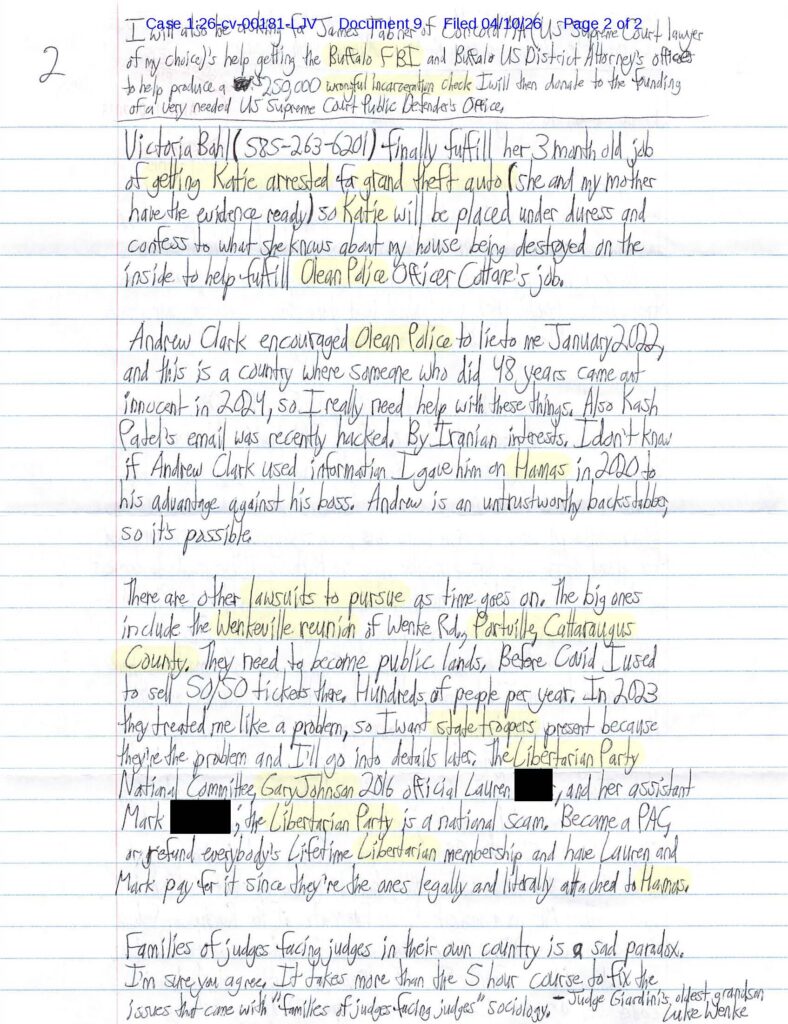 Case 1:26-cv-00181-LJV Document 9 Filed 04/10/26 Page 2 of 2
2
I will also be asking for James Tabner of Concord NH (US Supreme Court lawyer
of my choice)'s help getting the Buffalo FBI and Buffalo US District Attorney's offices
to help produce a $250,000 wrongful incarceration check I will then donate to the funding
of a very needed US Supreme Court Public Defender's Office.
Victoria Bahl (585-263-6201) finally fulfill her 3 month old job
of getting Katie arrested for grand theft auto (she and my mother
have the evidence ready) so Katie will be placed under duress and
confess to what she knows about my house being destroyed on the
inside to help fulfill Olean Police Officer Cottare's job.
Andrew Clark encouraged Olean Police to lie to me January 2022,
and this is a country where someone who did 48 years came out
innocent in 2024, so I really need help with these things. Also Kash
Patel's email was recently hacked. By Iranian interests. I don't know
if Andrew Clark used information I gave him on Hamas in 2020 to
his advantage against his boss. Andrew is an untrustworthy backstabber,
so it's possible.
There are other lawsuits to pursue as time goes on. The big ones
include the Wenkeville reunion of Wenke Rd, Portville, Cattaraugus
County. They need to become public lands. Before Covid I used
to sell 50/50 tickets there. Hundreds of people per year. In 2023
they treated me like a problem, so I want state troopers present because
they're the problem and I'll go into details later. The Libertarian Party
National Committee, Gary Johnson 2016 official Lauren , and her assistant
Mark ; the Libertarian Party is a national scam. Become a PAC,
or refund everybody's Lifetime Libertarian membership and have Lauren and
Mark pay for it since they're the ones legally and literally attached to Hamas.
Families of judges facing judges in their own country is a sad paradox.
I'm sure you agree. It takes more than the 5 hour course to fix the
issues that come with "families of judges facing judges" sociology. - Judge Giardini's oldest grandson
Luke Wenke